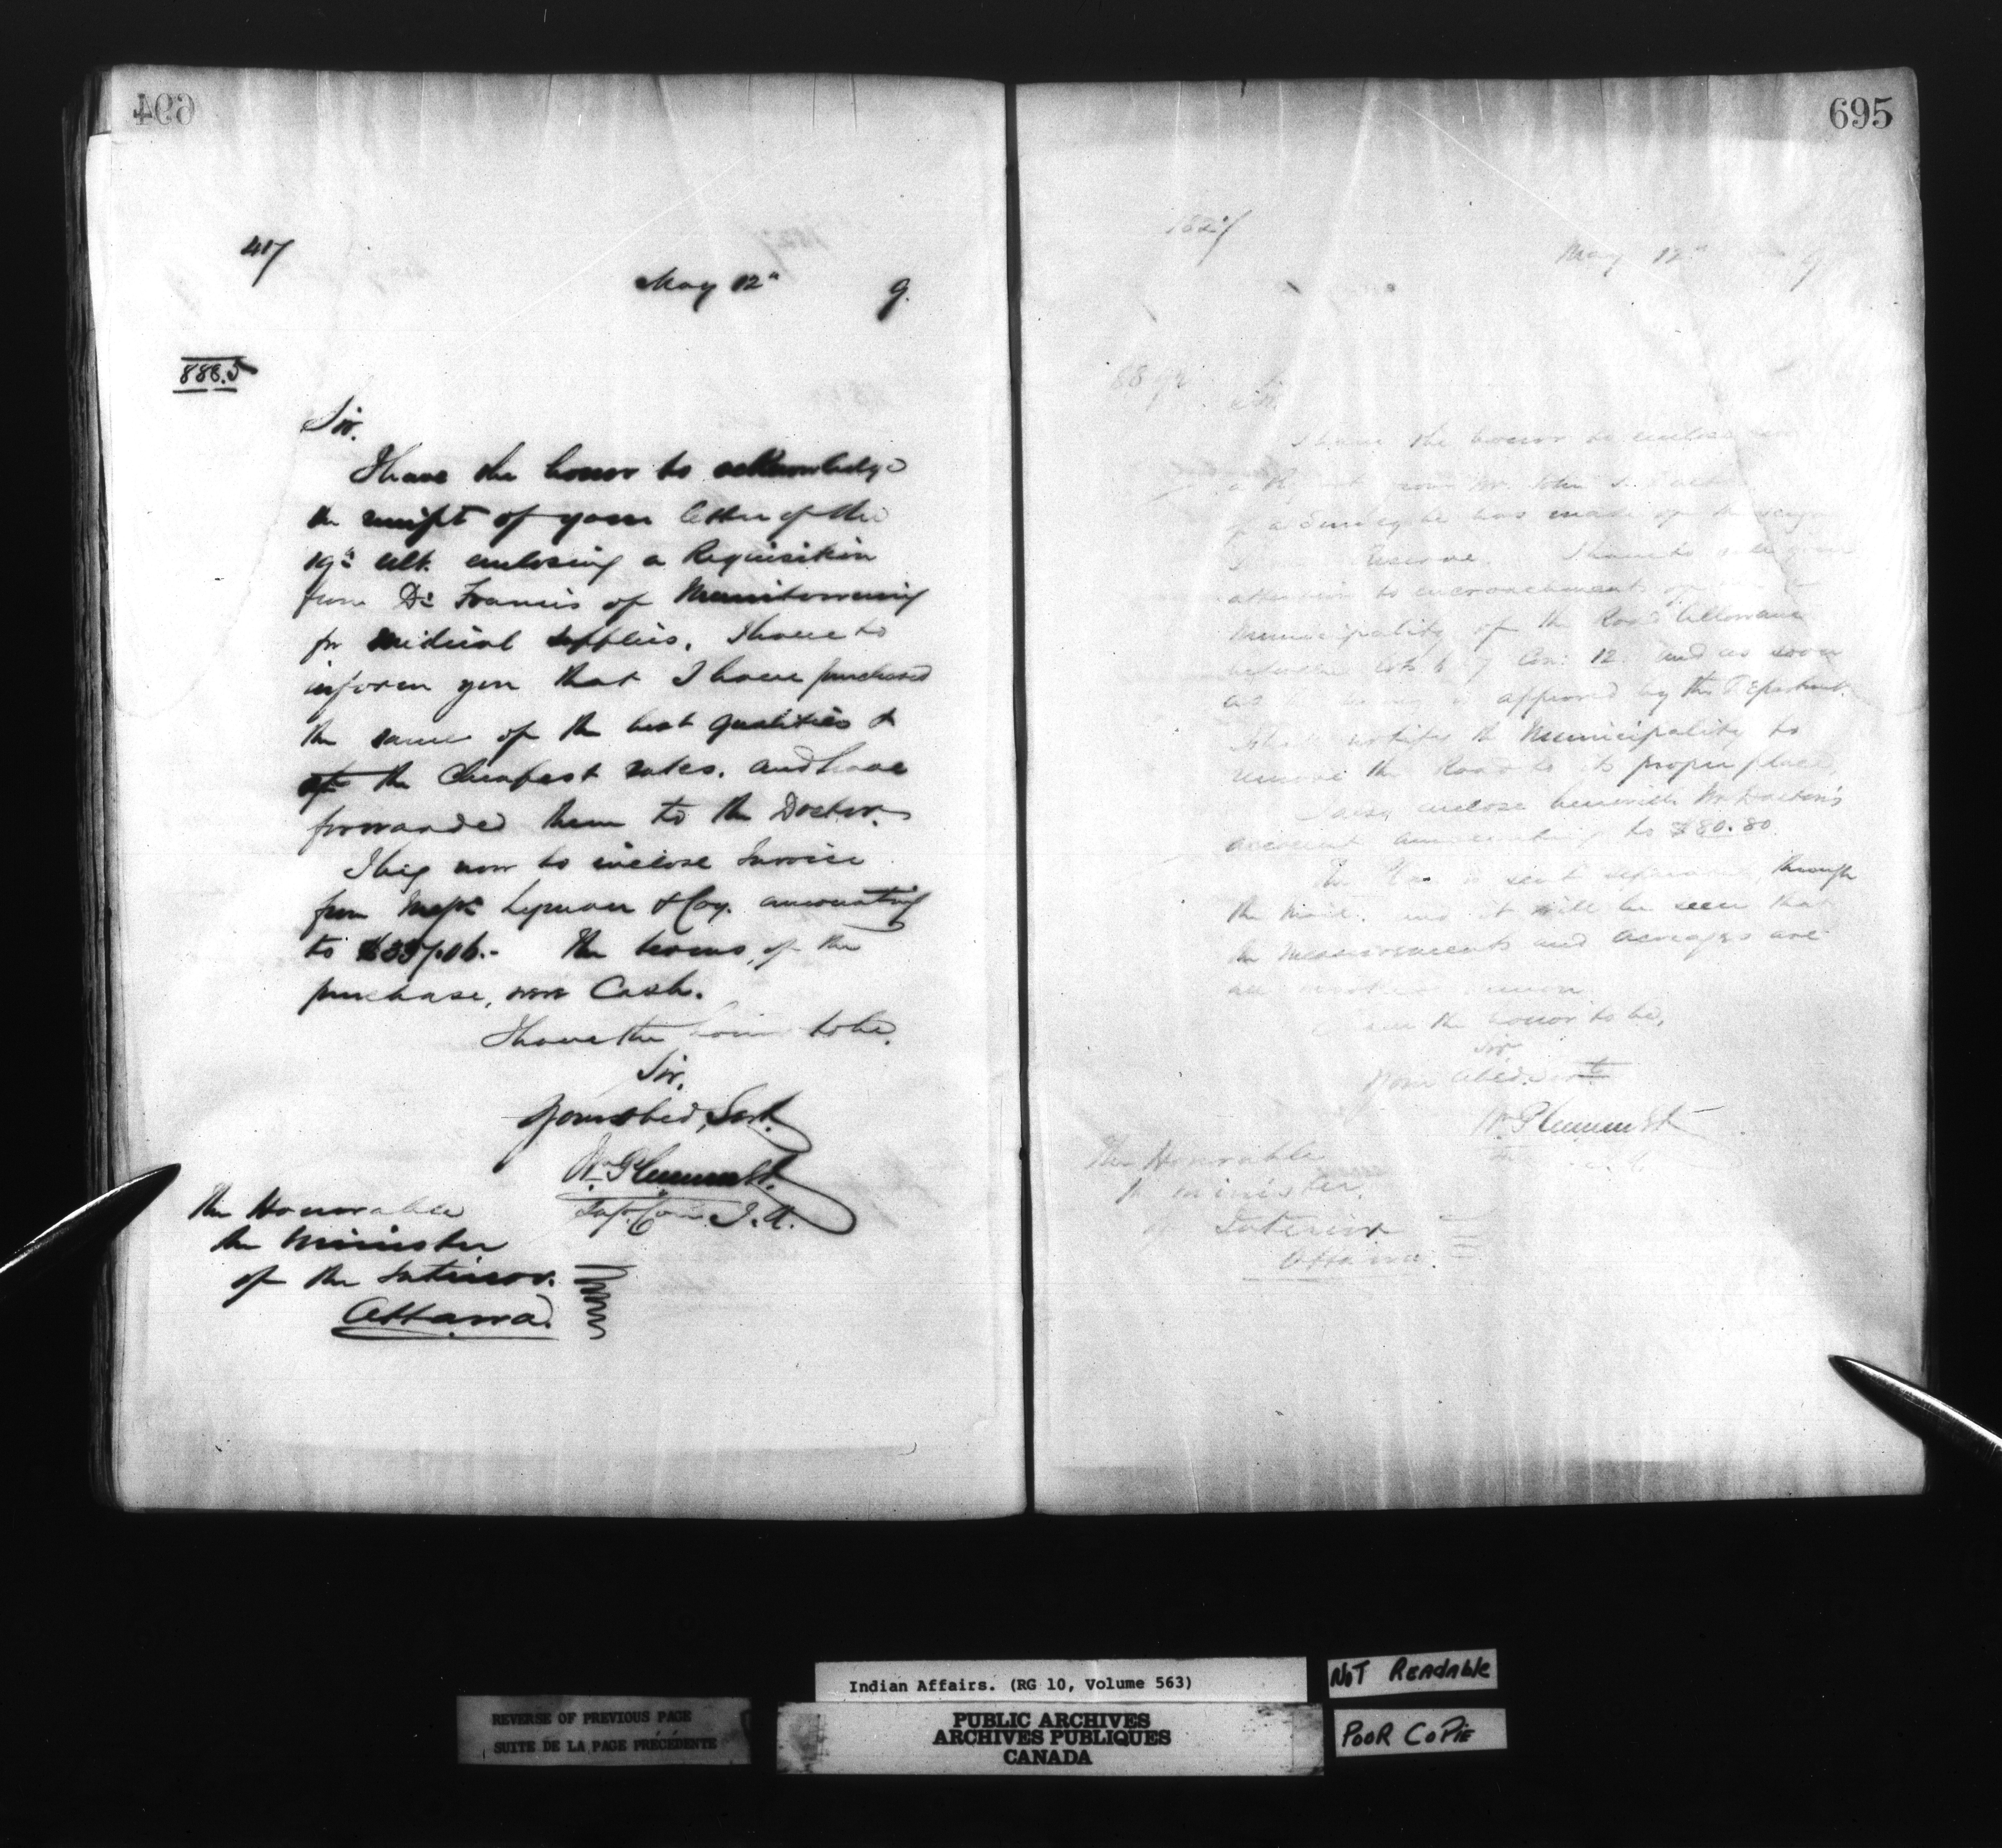 694
417
May 12th 9.
888.5
Sir.
I have the honor to acknowledge
the receipt of your letter of the
19th ult. enclosing a Requisition
from Dr Francis of Manitowaning
for medical supplies. I have to
inform you that I have purchased
the same of the best qualities &
at the Cheapest rates. and have
forwarded them to the Doctor.
I beg now to inclose Invoice
from Messrs Lyman & Coy. amounting
to The terms, of the
purchase, were Cash.
I have the honor to be.
Sir,
Your obed. Servt.
Wm Plummer
Supt. Com I. A.
The Honorable
the Minister
of the Interior.
Ottawa.
695
May 12th 9
Sir
I have the honor to enclose
from Mr. John
of a Survey he has made of the
Reserve I have to call your
attention to encroachments
Municipality of the Road Allowance
between Lots 6 & 7 Con: 12. and as soon
as approved by the Department.
I shall notify the Municipality to
remove the Road to its proper place.
I also enclose herewith Mr
account amounting to $80.80
The is sent separately through
the Mail. and it will be seen that
the Measurements and acreages are
all
I have the honor to be,
Sir
Your Obed. Servt
Wm Plummer
The Honorable
the Minister
of Interior
Ottawa.
Indian Affairs. (RG 10, Volume 563)
NOT READABLE
REVERSE OF PREVIOUS PAGE
SUITE DE LA PAGE PRÉCÉDENTE
PUBLIC ARCHIVES
ARCHIVES PUBLIQUES
CANADA
POOR COPIE